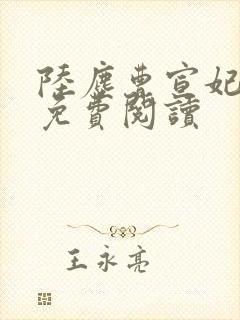 陸塵曹宣妃
免費閱讀
王永亮